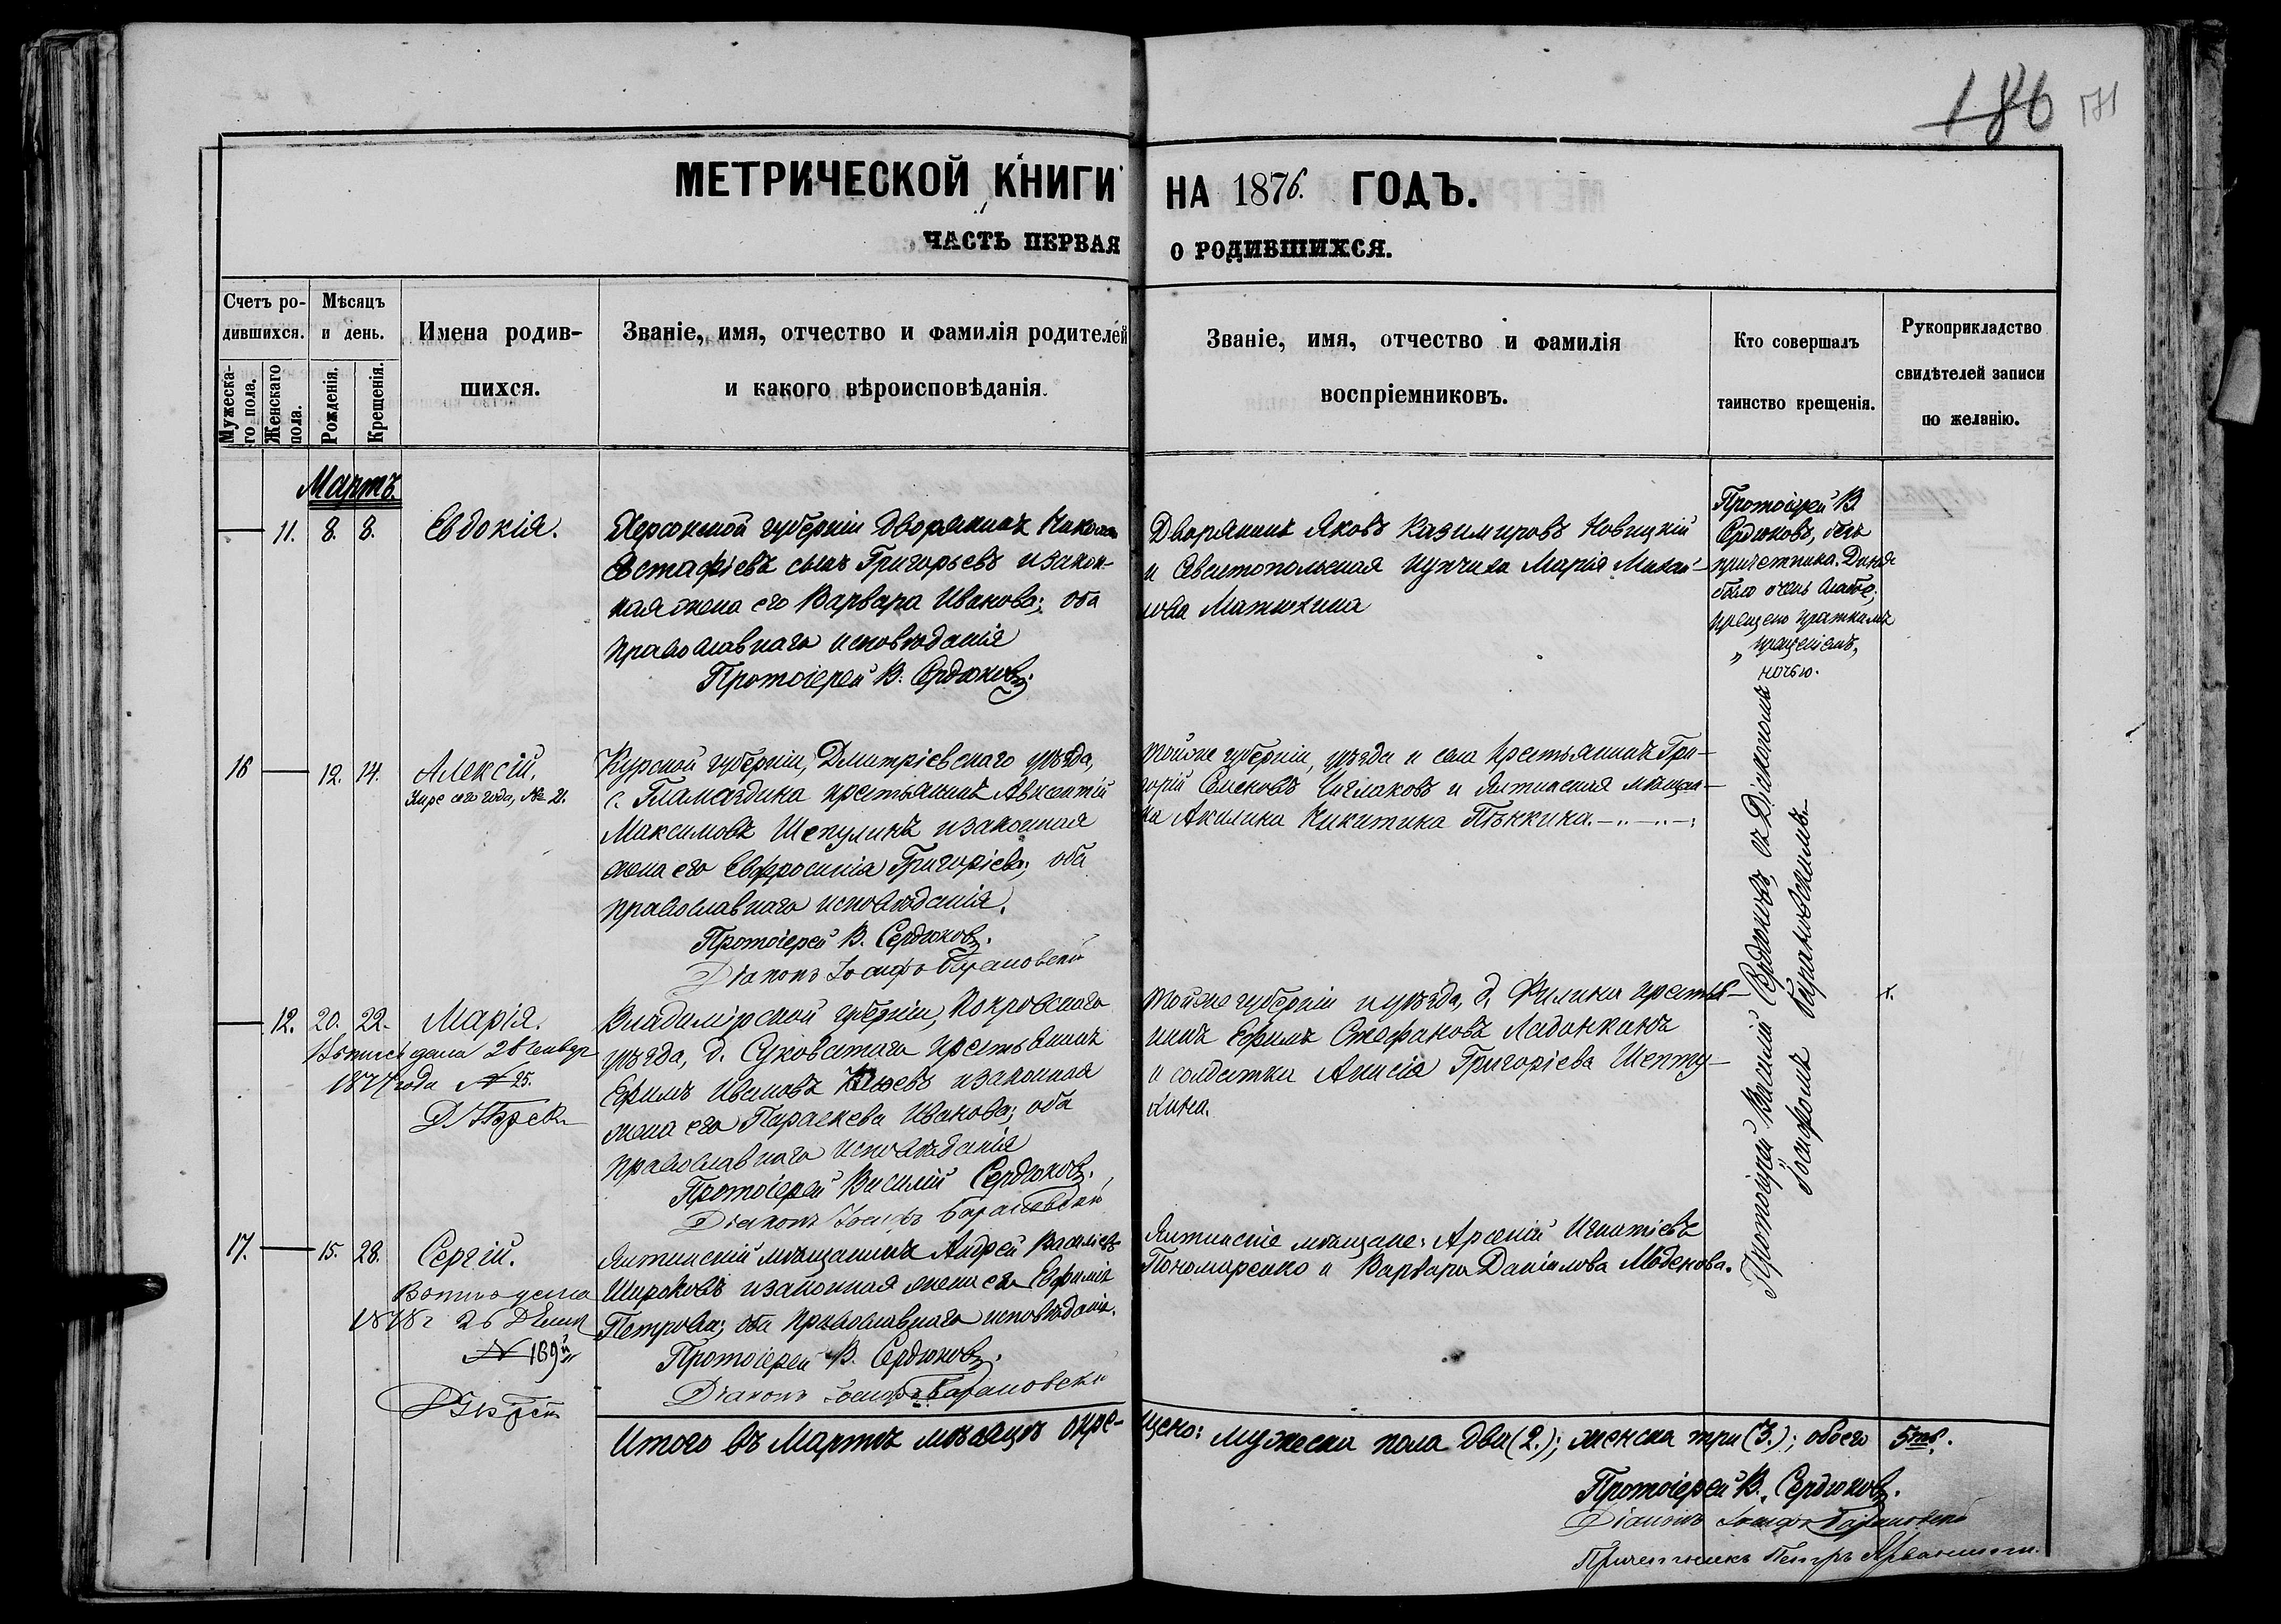 186 171
МЕТРИЧЕСКОЙ КНИГИ НА 1876. ГОДЪ.
ЧАСТЬ ПЕРВАЯ О РОДИВШИХСЯ.
Счетъ ро-
дившихся.
Мужеска-
го пола.
Женскаго
пола.
Мѣсяцъ
и день.
Рожденія.
Крещенія.
Имена родив-
шихся.
Званіе, имя, отчество и фамилія родителей
и какого вѣроисповѣданія.
Званіе, имя, отчество и фамилія
воспріемниковъ.
Кто совершалъ
таинство крещенія.
Рукоприкладство
свидѣтелей записи
по желанію.
Мартъ
11. 8. 8. Евдокія.
Херсонской губерніи дворянинъ Никола
Евстафіевъ сынъ Григорьевъ и закон-
ная жена его Варвара Иванова; оба
православнаго исповѣданія
Протоіерей В. Сердюковъ.
Дворянинъ Яковъ Казимировъ Новицкій
и Севастопольская купчиха Марія Михаи-
лова Матюхина
Протоіерей В.
Сердюковъ, безъ
причетника. Дитя
было очень слабо;
крещено краткимъ
„крещеніемъ„
ночью.
16 12. 14. Алексій.
сего года, № 21.
Курской губерніи, Дмитріевскаго уѣзда,
с. крестьянинъ Авксентій
Максимовъ Шепулинъ и законная
жена его Евфросинія Григоріева; оба
православнаго исповѣданія.
Протоіерей В. Сердюковъ.
Діаконъ Іосифъ Барановскій
Тойже губерніи, уѣзда и села крестьянинъ Гри-
горій Семеновъ и Ялтинская мѣщан-
ка Акилина Никитина Пѣнкина.
12. 20. 22. Марія.
дана 28 Генвар
1877 года № 25.
Владимірской губерніи, Покровскаго
уѣзда, д. крестьянинъ
Ефимъ Ивановъ и законная
жена его Параскева Иванова; оба
православнаго исповѣданія
Протоіерей Василій Сердюковъ.
Діаконъ Іосифъ Барановскій
Тойже губерніи и уѣзда, д. Филина крестья-
нинъ Ефимъ Стефановъ Ладонкинъ
и солдатка Анисія Григоріева Шепту-
хина.
Протоіерей Василій Сердюковъ, съ Діакономъ
Іосифомъ Барановскимъ.
17. 15. 28. Сергій.
1878 г 26
№ 189й
Ялтинскій мѣщанинъ Андрей Василіевъ
Широковъ и законная жена его Евфимія
Петрова; оба православнаго исповѣданія.
Протоіерей В. Сердюковъ.
Діаконъ Іосифъ Барановскій
Ялтинскіе мѣщане: Арсеній Игнатіевъ
Пономаренко и Варвара Даніилова Мѣденова.
Итого въ Мартѣ мѣсяцѣ окре-
щено: мужеска пола два (2.); женска три (3.); обоего 5ть.
Протоіерей В. Сердюковъ.
Діаконъ Іосифъ Барановскій
Причетникъ Петръ